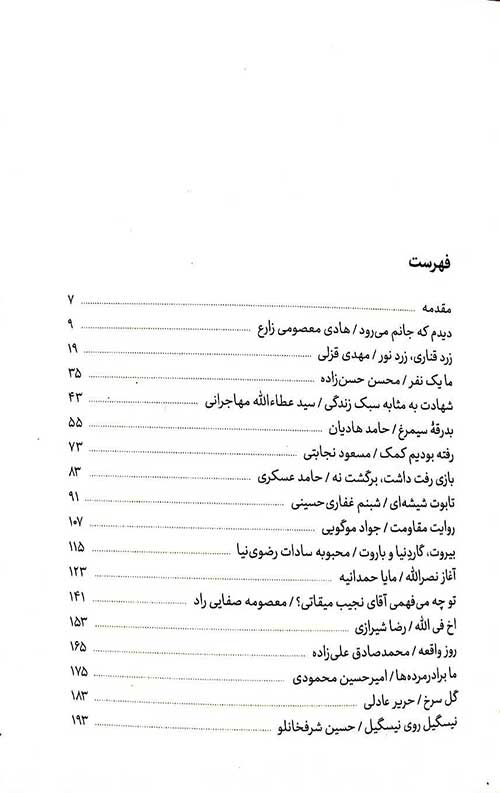 فهرست
مقدمه ........ ۷
دیدم که جانم می‌رود/ هادی معصومی زارع ........ ۹
زرد قناری، زرد نور/ مهدی قزلی ........ ۱۹
ما یک نفر/ محسن حسن‌زاده ........ ۳۵
شهادت به مثابه سبک زندگی/ سید عطاءالله مهاجرانی ........ ۴۳
بدرقهٔ سیمرغ/ حامد هادیان ........ ۵۵
رفته بودیم کمک/ مسعود نجابتی ........ ۷۳
بازی رفت داشت، برگشت نه/ حامد عسکری ........ ۸۳
تابوت شیشه‌ای/ شبنم غفاری‌حسینی ........ ۹۱
روایت مقاومت/ جواد موگویی ........ ۱۰۷
بیروت، گاردِنیا و باروت/ محبوبه سادات رضوی‌نیا ........ ۱۱۵
آغاز نصرالله/ مایا حمدانیه ........ ۱۲۳
تو چه می‌فهمی آقای نجیب میقاتی؟/ معصومه صفایی راد ........ ۱۴۱
اخ فی الله/ رضا شیرازی ........ ۱۵۳
روز واقعه/ محمدصادق علی‌زاده ........ ۱۶۵
ما برادرمرده‌ها/ امیرحسین محمودی ........ ۱۷۵
گل سرخ/ حریر عادلی ........ ۱۸۳
نیسگیل روی نیسگیل/ حسین شرفخانلو ........ ۱۹۳